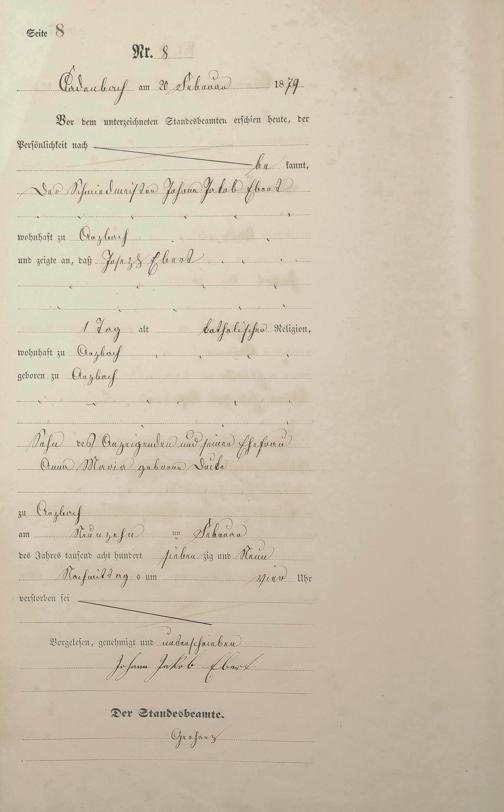 Seite 8
Nr. 8
Cadenbach am 20 Februar 1879
Vor dem unterzeichneten Standesbeamten erschien heute, der
Persönlichkeit nach
be kannt,
Der Schmiedmeister Johann Jakob Ebert
wohnhaft zu Arzbach
und zeigte an, daß Joseph Ebert
1 Tag alt katholischer Religion,
wohnhaft zu Arzbach
geboren zu Arzbach
Sohn des Anzeigenden und seiner Ehefrau
Anna Maria geborene
zu Arzbach
am Neunzehn ten Februar
des Jahres tausend acht hundert sieben zig und Neun
Nachmittag s um vier Uhr
verstorben sei
Vorgelesen, genehmigt und unterschrieben
Johann Jakob Ebert
Der Standesbeamte.